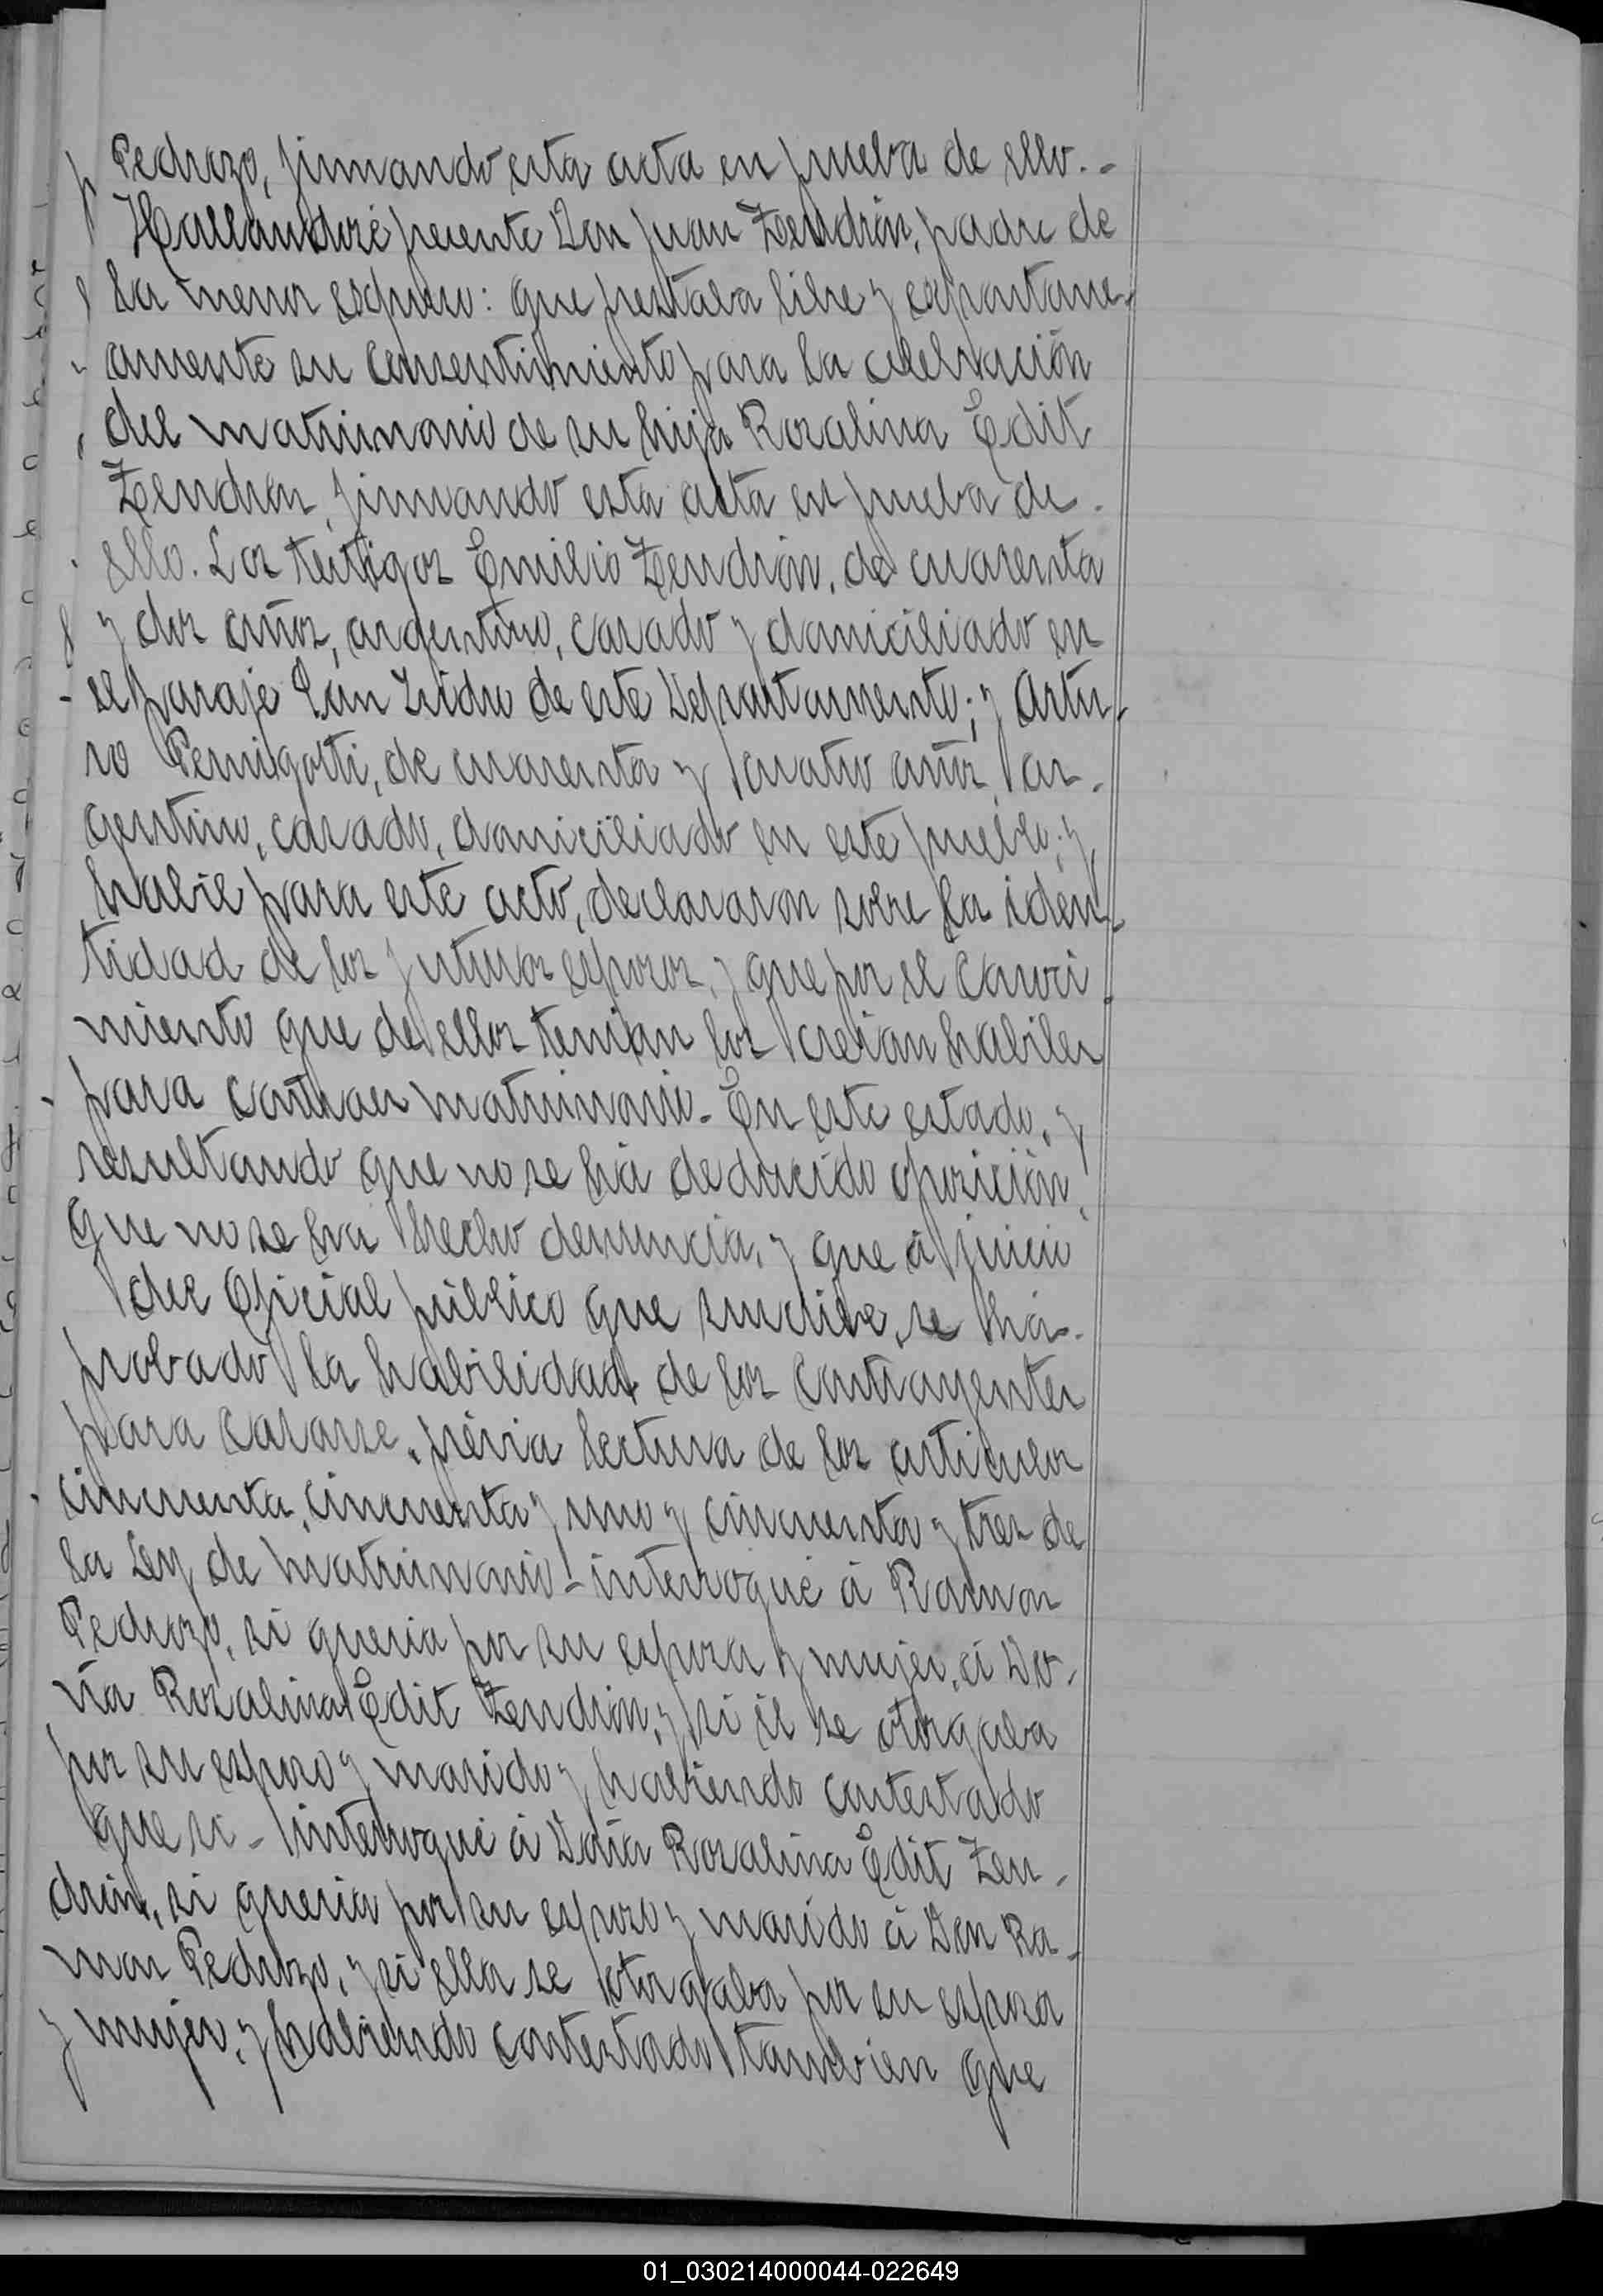 Pedrozo, firmando esta acta en prueba de ello.-
Hallandose presente Don Juan Zendrón, padre de
la menor espuso: que prestaba libre y espontane-
amente su consentimiento para la celebración
del matrimonio de su hija Rosalina Edit
Zendrón, firmando esta acta en prueba de
ello. Los testigos Emilio Zendrón, de cuarenta
y dos años, argentino, casado y domiciliado en
el paraje San Isidro de este Departamento; y Artu-
ro Pernigotti, de cuarenta y cuatro años, ar-
gentino, casado, domiciliado en este pueblo; y
habil para este acto, declararon sobre la iden-
tidad de los futuros esposos, y que por el conoci
miento que de ellos tenian los creían habiles
para contraer matrimonio. En este estado, y
resultando que no se há deducido oposición,
que no se ha hecho denuncia, y que á juicio
del Oficial público que suscribe, se há
probado la habilidad de los contrayentes
para casarse, prévia lectura de los articulos
cincuenta, cincuenta y uno y cincuenta y tres de
la Ley de Matrimonio - interrogué á Ramon
Pedrozo, si queria por su esposa y mujer, á Do-
ña Rosalina Edit Zendrón, y si él se otorgaba
por su esposo y marido y habiendo contestado
que si - interrogué á Doña Rosalina Edit Zen-
drón, si queria por su esposo y marido á Don Ra-
mon Pedrozo, y si ella se otorgaba por su esposa
y mujer, y habiendo contestado tambien que
01_030214000044-022649